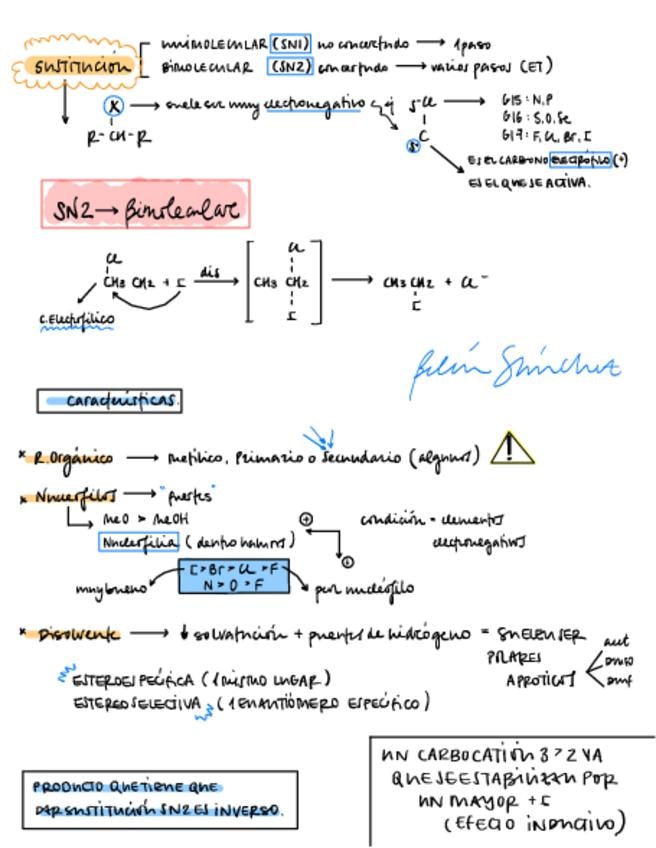 SUSTITUCIÓN
UNIMOLECULAR (SN1) no concertado → 1 paso
BIMOLECULAR (SN2) concertado → varios pasos (ET)
X → suele ser muy electronegativo
R-CH-R
δ-Cl → G15: N, P
G16: S, O, Se
C G17: F, Cl, Br, I
δ+
ES EL CARBONO ELECTRÓFILO (+)
ES EL QUE SE ACTIVA.
SN2 → Bimolecular
Cl
CH3 CH2 + I dis →
Cl
CH3 CH2
I
→ CH3CH2 + Cl⁻
I
C. Electrofílico
Belén Sánchez
características.
* R. Orgánico → metílico, Primario o Secundario (algunos)
* Nucleófilos → "fuertes"
MeO > MeOH
Nucleofilia (dentro haluros)
condición = elementos
electronegativos
I > Br > Cl > F
N > O > F
muy bueno
peor nucleófilo
* Disolvente → ↓ solvatación + puentes de hidrógeno = SUELEN SER
POLARES
APROTICOS
DMSO
DMF
ESTEROESPECÍFICA (1 MISMO LUGAR)
ESTEREOSELECTIVA (1 ENANTIÓMERO ESPECÍFICO)
PRODUCTO QUE TIENE QUE
DAR SUSTITUCIÓN SN2 ES INVERSO.
UN CARBOCATIÓN 3 > 2 VA
QUE SE ESTABILIZAN POR
UN MAYOR + I
(EFECTO INDUCTIVO)